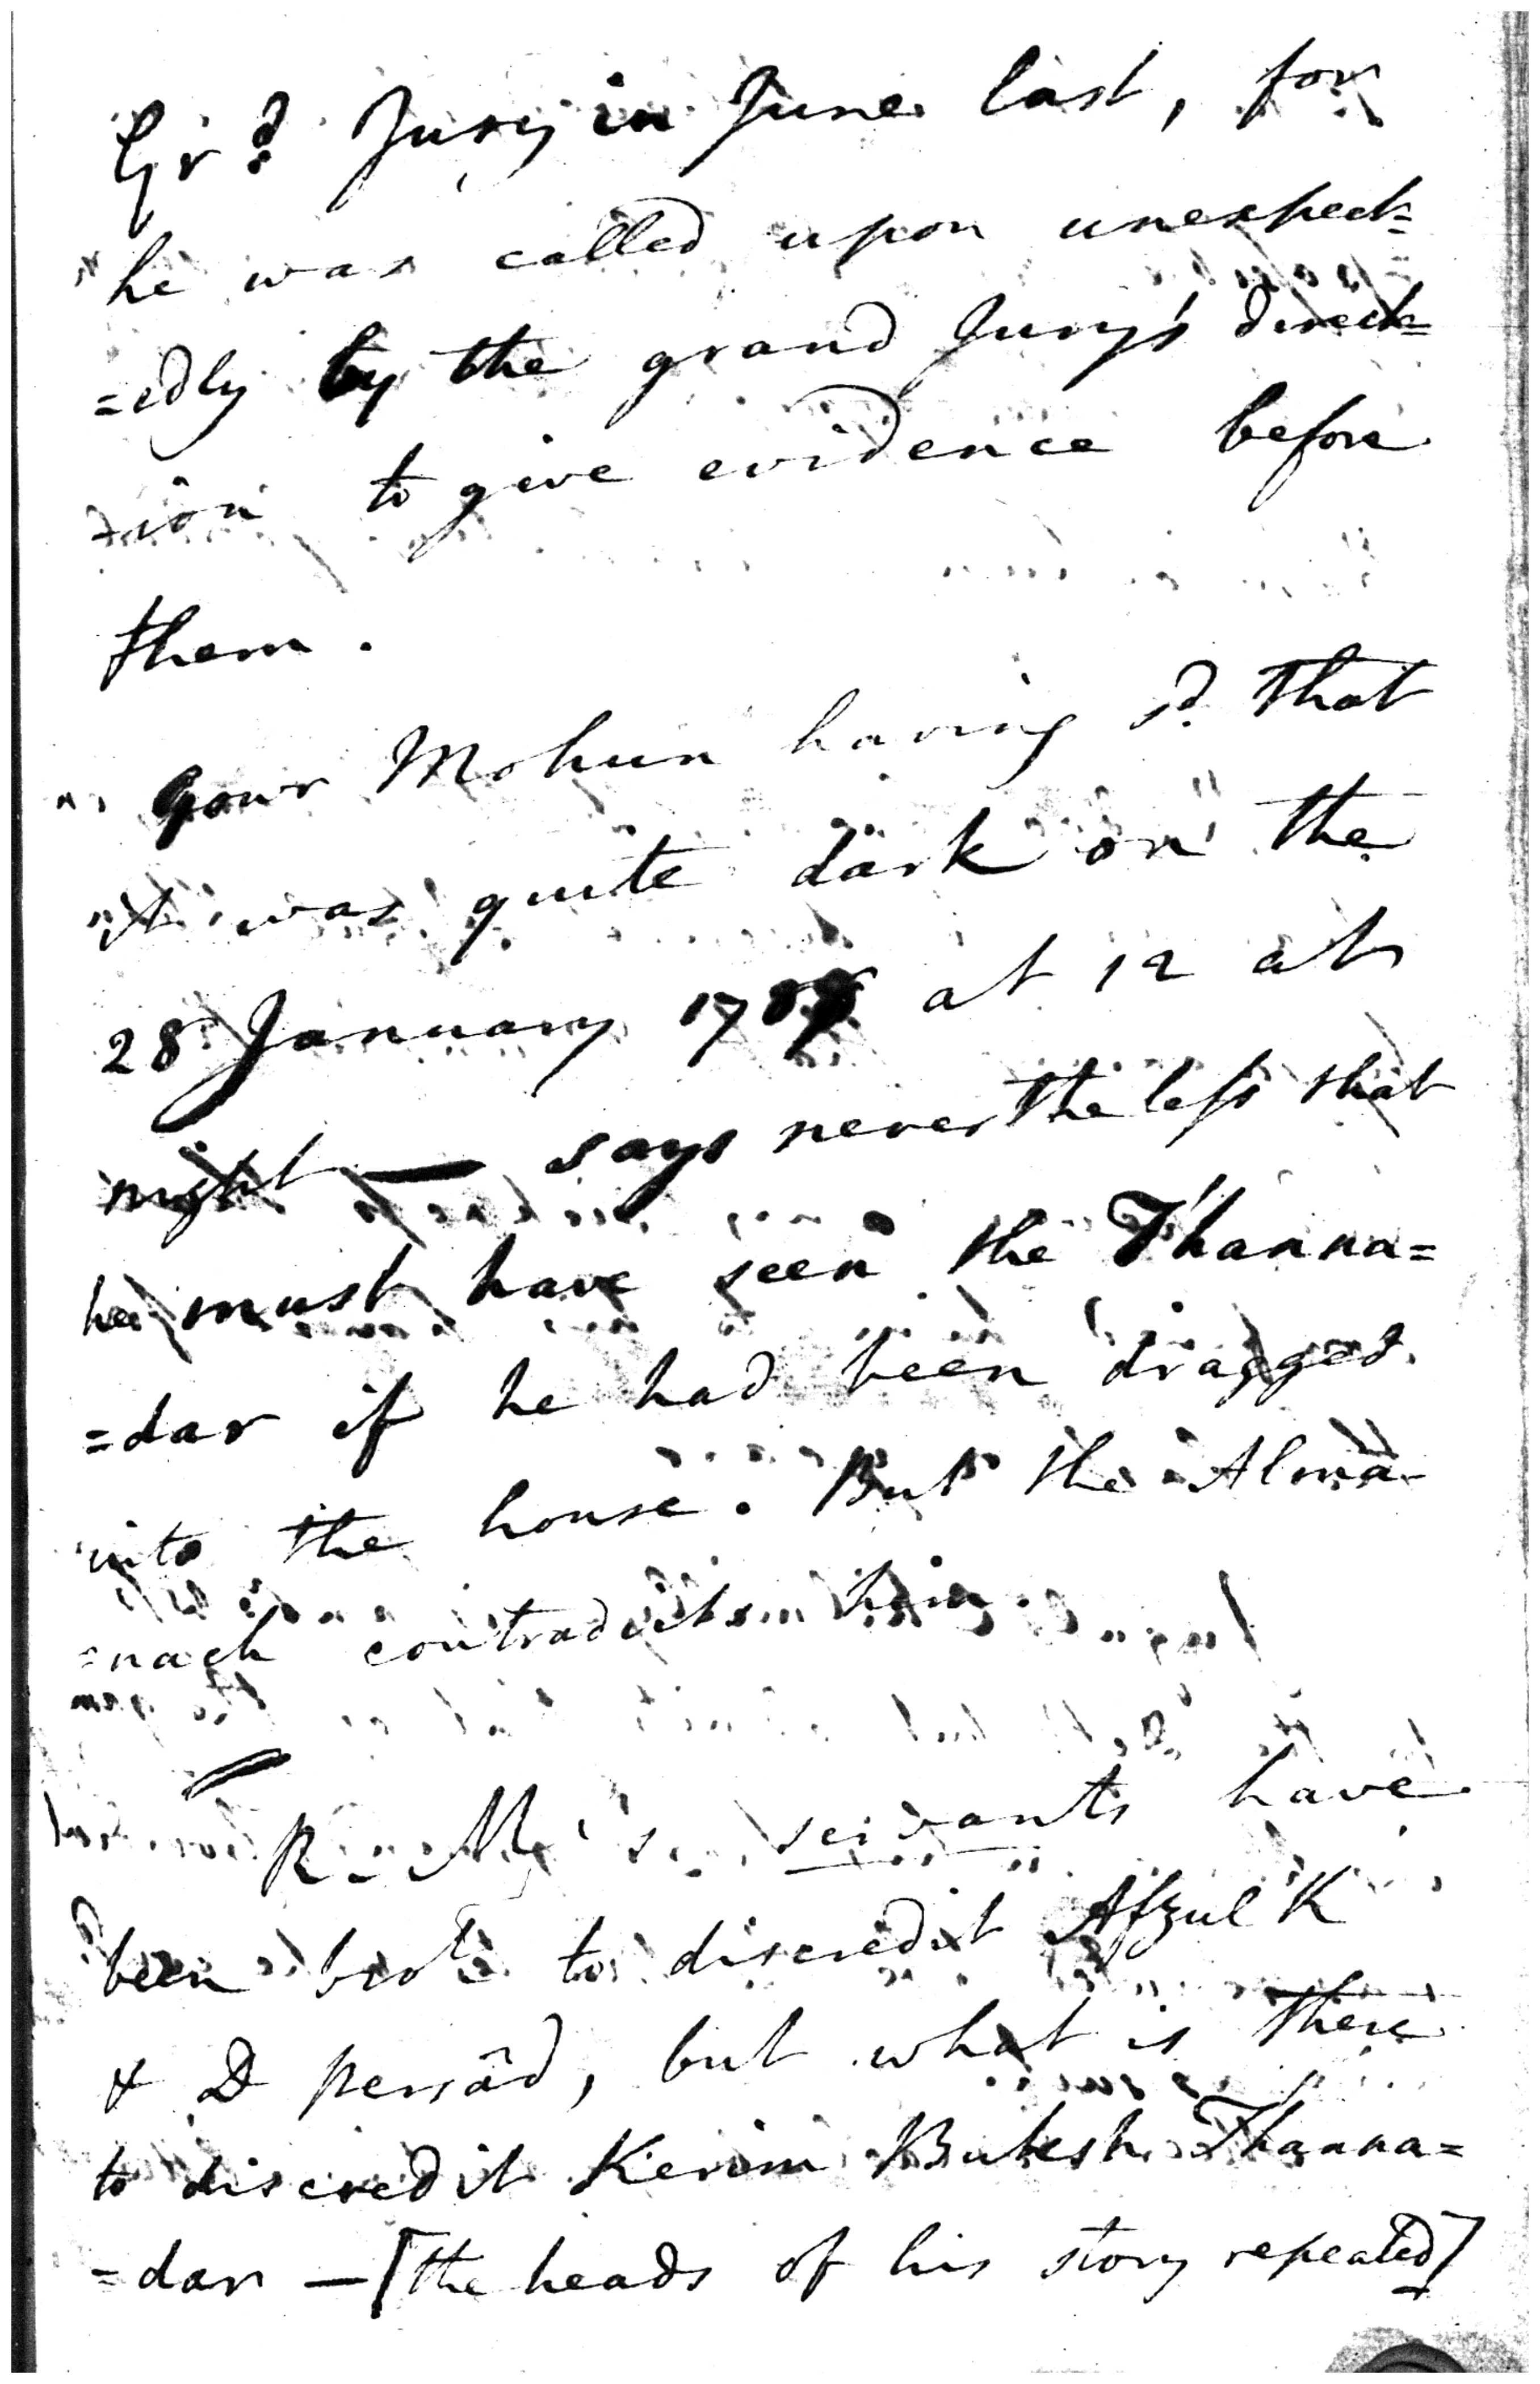 Grd Jury in June last, for
he was called upon unexpect=
=edly by the grand Jury's direct=
=ion to give evidence before
them.
Gour Mohun having sd that
it was quite dark on the
28 January 178 at 12 at
night — says nevertheless that
he must have seen the Thanna=
=dar if he had been dragged
into the house. But the Alma-
=nack contradicts him.
R. M's servants have
been brot to discredit Afzul K
& D persâd, but what is there
to discredit Kerim Buksh Thanna=
=dar — [the heads of his story repeated]